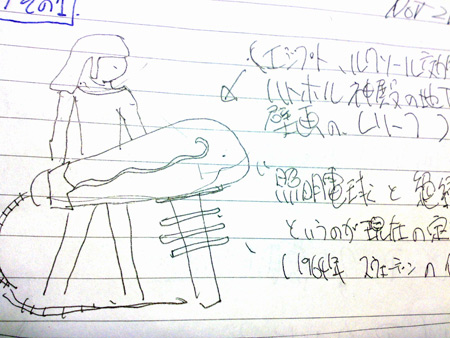 その1.
Nov 2
(エジプト、ルクソール
ハトホル神殿の地下
壁画のレリーフ)
照明電球と絶縁
というのが現在の定
(1964年 スウェーデンの